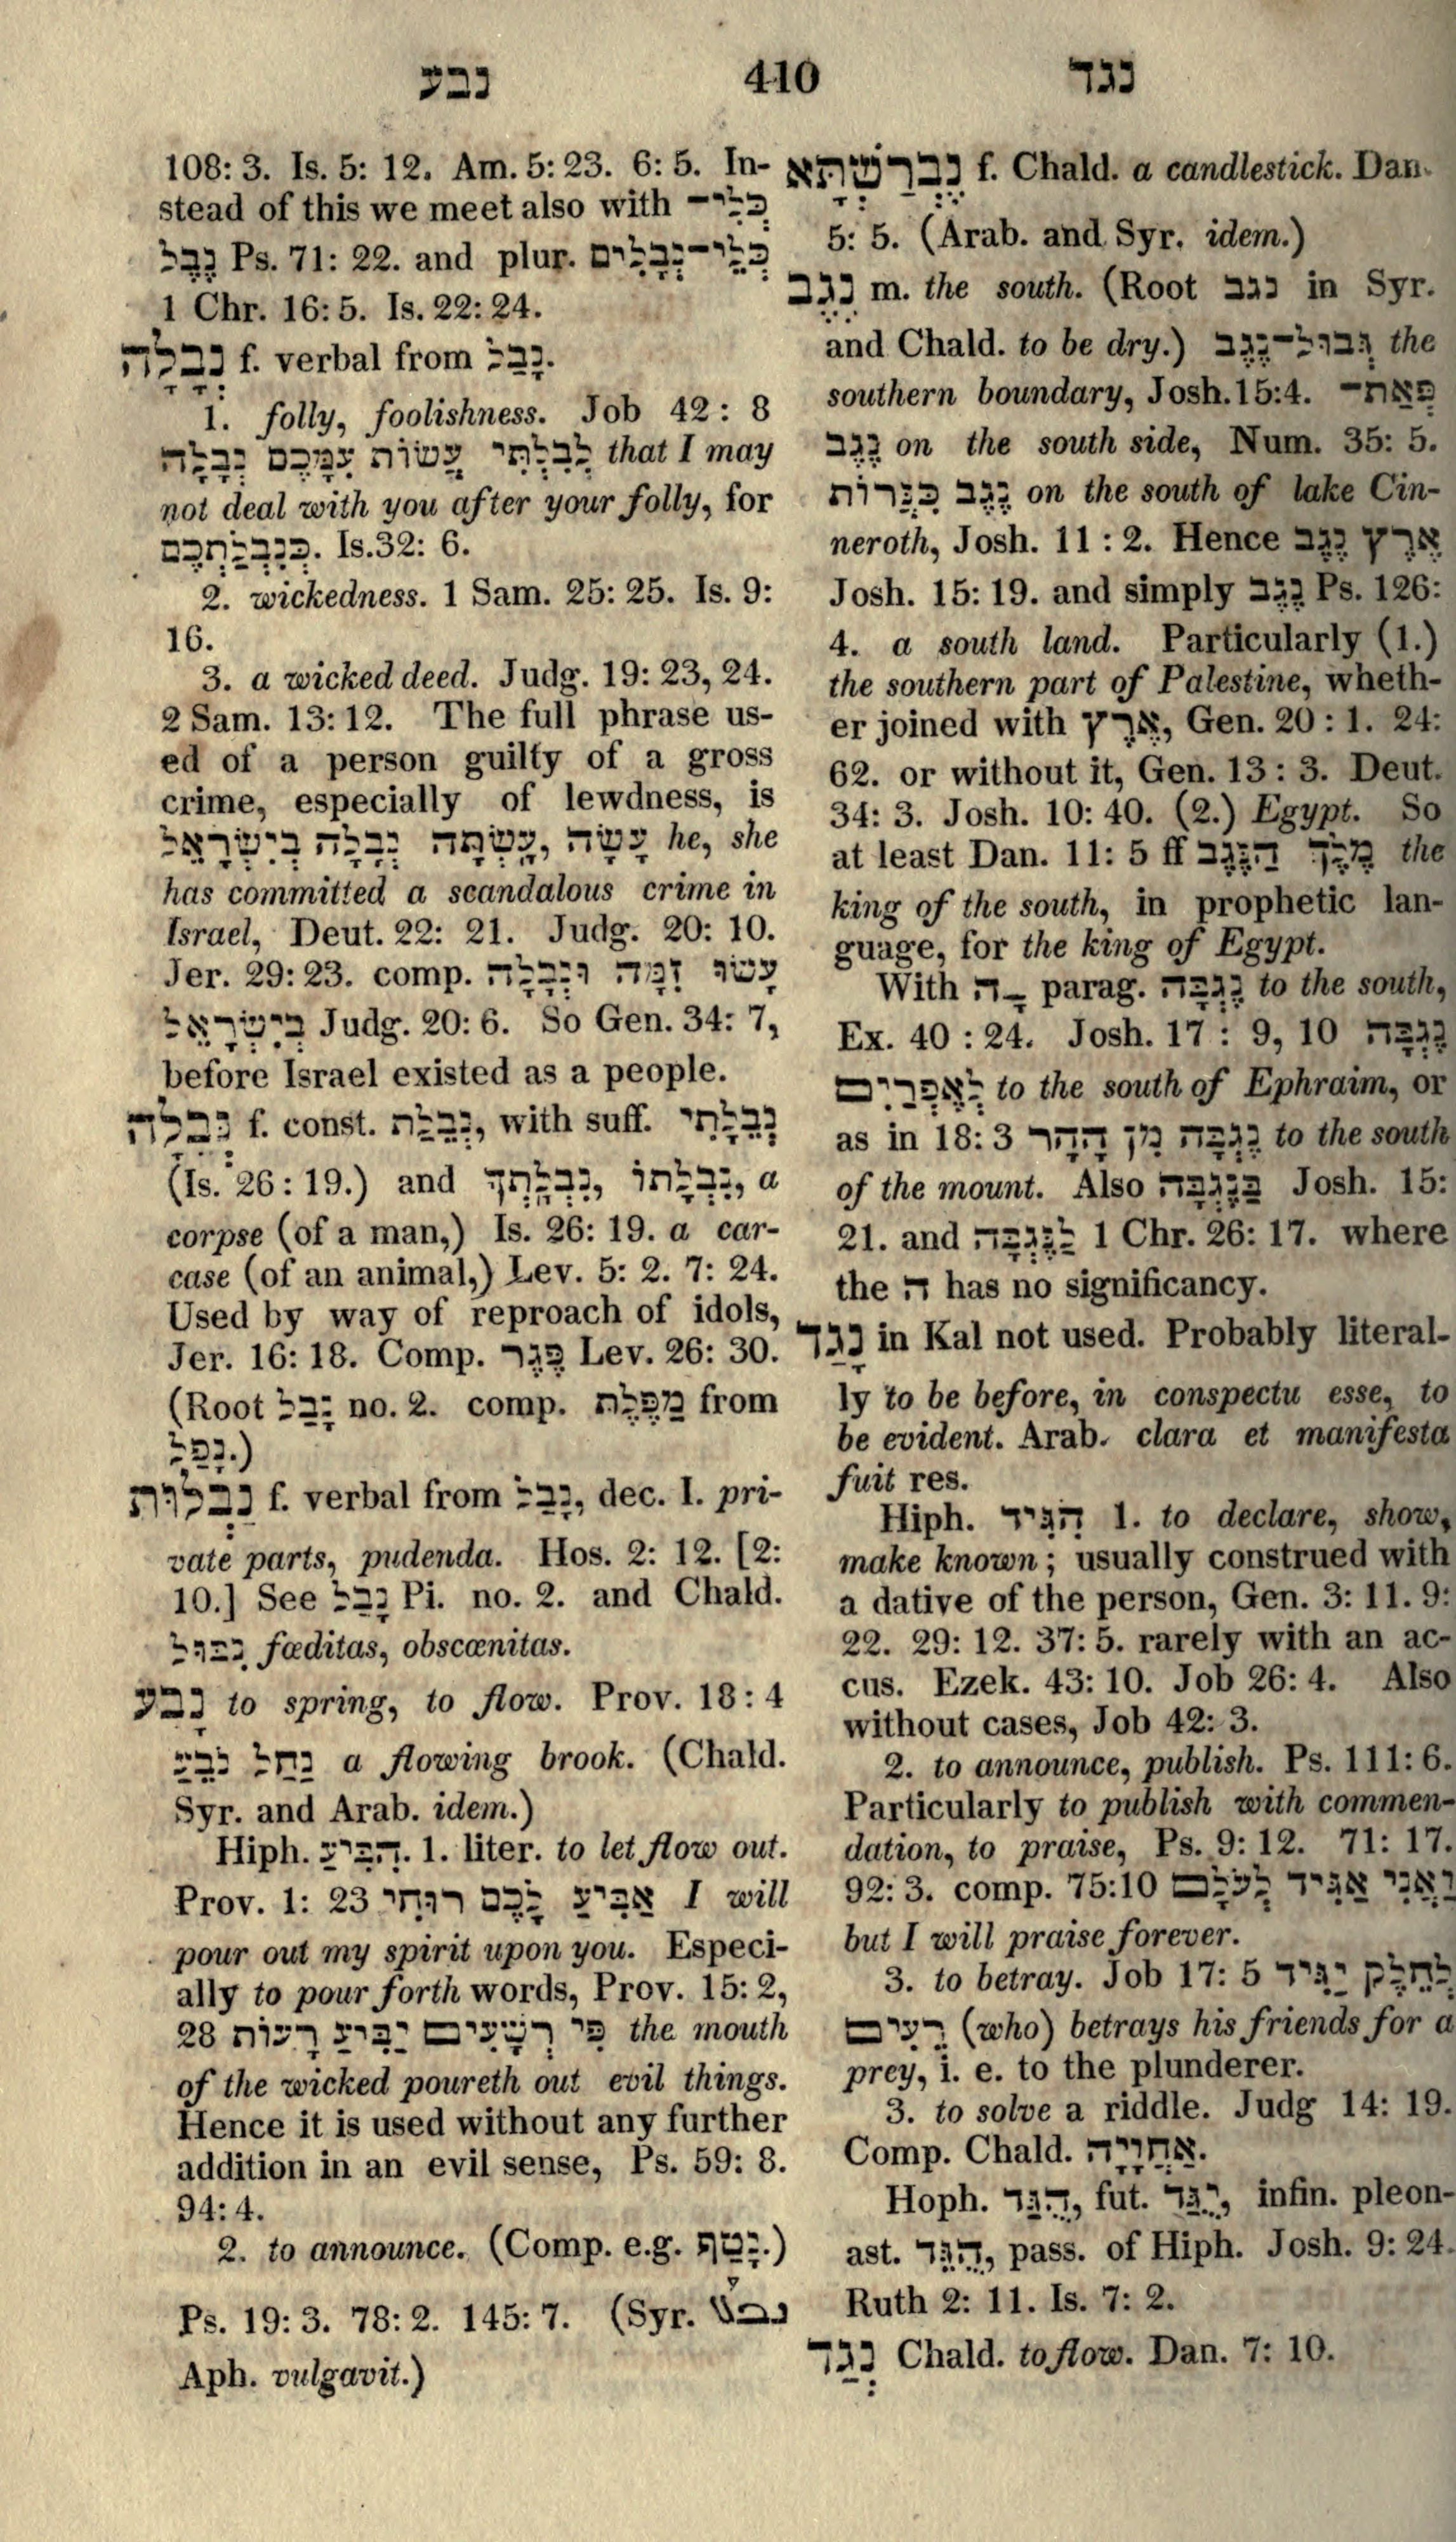 נבע 410 נגד
108: 3. Is. 5: 12. Am. 5: 23. 6: 5. In-
stead of this we meet also with כְּלִי־
נֶבֶל Ps. 71: 22. and plur. כְּלֵי־נְבָלִים
1 Chr. 16: 5. Is. 22: 24.
נְבָלָה f. verbal from נָבֵל.
1. folly, foolishness. Job 42: 8
לְבִלְתִּי עֲשׂוֹת עִמָּכֶם נְבָלָה that I may
not deal with you after your folly, for
כְּנִבְלַתְכֶם. Is. 32: 6.
2. wickedness. 1 Sam. 25: 25. Is. 9:
16.
3. a wicked deed. Judg. 19: 23, 24.
2 Sam. 13: 12. The full phrase us-
ed of a person guilty of a gross
crime, especially of lewdness, is
עָשָׂה, עָשְׂתָה נְבָלָה בְיִשְׂרָאֵל he, she
has committed a scandalous crime in
Israel, Deut. 22: 21. Judg. 20: 10.
Jer. 29: 23. comp. עָשׂוּ זִמָּה וּנְבָלָה
בְּיִשְׂרָאֵל Judg. 20: 6. So Gen. 34: 7,
before Israel existed as a people.
נְבֵלָה f. const. נִבְלַת, with suff. נְבֵלָתִי
(Is. 26: 19.) and נִבְלָתְךָ, נִבְלָתוֹ, a
corpse (of a man,) Is. 26: 19. a car-
case (of an animal,) Lev. 5: 2. 7: 24.
Used by way of reproach of idols,
Jer. 16: 18. Comp. פֶּגֶר Lev. 26: 30.
(Root נָבֵל no. 2. comp. מַפֶּלֶת from
נָפַל.)
נַבְלוּת f. verbal from נָבֵל, dec. I. pri-
vate parts, pudenda. Hos. 2: 12. [2:
10.] See נָבֵל Pi. no. 2. and Chald.
נִבּוּל fœditas, obscœnitas.
נָבַע to spring, to flow. Prov. 18: 4
נַחַל נֹבֵעַ a flowing brook. (Chald.
Syr. and Arab. idem.)
Hiph. הִבִּיעַ. 1. liter. to let flow out.
Prov. 1: 23 אַבִּיעָה לָכֶם רוּחִי I will
pour out my spirit upon you. Especi-
ally to pour forth words, Prov. 15: 2,
28 פִּי רְשָׁעִים יַבִּיעַ רָעוֹת the mouth
of the wicked poureth out evil things.
Hence it is used without any further
addition in an evil sense, Ps. 59: 8.
94: 4.
2. to announce. (Comp. e.g. נָטַף.)
Ps. 19: 3. 78: 2. 145: 7. (Syr. ܢܒܥ
Aph. vulgavit.)
נֶבְרַשְׁתָּא f. Chald. a candlestick. Dan.
5: 5. (Arab. and Syr. idem.)
נֶגֶב m. the south. (Root נגב in Syr.
and Chald. to be dry.) גְּבוּל־נֶגֶב the
southern boundary, Josh. 15:4. פְּאַת־
נֶגֶב on the south side, Num. 35: 5.
נֶגֶב כִּנֲּרוֹת on the south of lake Cin-
neroth, Josh. 11: 2. Hence אֶרֶץ נֶגֶב
Josh. 15: 19. and simply נֶגֶב Ps. 126:
4. a south land. Particularly (1.)
the southern part of Palestine, wheth-
er joined with אֶרֶץ, Gen. 20: 1. 24:
62. or without it, Gen. 13: 3. Deut.
34: 3. Josh. 10: 40. (2.) Egypt. So
at least Dan. 11: 5 ff מֶלֶךְ הַנֶּגֶב the
king of the south, in prophetic lan-
guage, for the king of Egypt.
With ־ָה parag. נֶגְבָּה to the south,
Ex. 40: 24. Josh. 17: 9, 10 נֶגְבָּה
לְאֶפְרַיִם to the south of Ephraim, or
as in 18: 3 נֶגְבָּה מִן הָהָר to the south
of the mount. Also בַּנֶּגְבָּה Josh. 15:
21. and לַנֶּגְבָּה 1 Chr. 26: 17. where
the ה has no significancy.
נָגַד in Kal not used. Probably literal-
ly to be before, in conspectu esse, to
be evident. Arab. clara et manifesta
fuit res.
Hiph. הִגִּיד 1. to declare, show,
make known; usually construed with
a dative of the person, Gen. 3: 11. 9:
22. 29: 12. 37: 5. rarely with an ac-
cus. Ezek. 43: 10. Job 26: 4. Also
without cases, Job 42: 3.
2. to announce, publish. Ps. 111: 6.
Particularly to publish with commen-
dation, to praise, Ps. 9: 12. 71: 17.
92: 3. comp. 75:10 וַאֲנִי אַגִּיד לְעֹלָם
but I will praise forever.
3. to betray. Job 17: 5 לְחֵלֶק יַגִּיד
רֵעִים (who) betrays his friends for a
prey, i. e. to the plunderer.
3. to solve a riddle. Judg 14: 19.
Comp. Chald. אַחֲוָיָה.
Hoph. הֻגַּד, fut. יֻגַּד, infin. pleon-
ast. הֻגֵּד, pass. of Hiph. Josh. 9: 24.
Ruth 2: 11. Is. 7: 2.
נְגַד Chald. to flow. Dan. 7: 10.